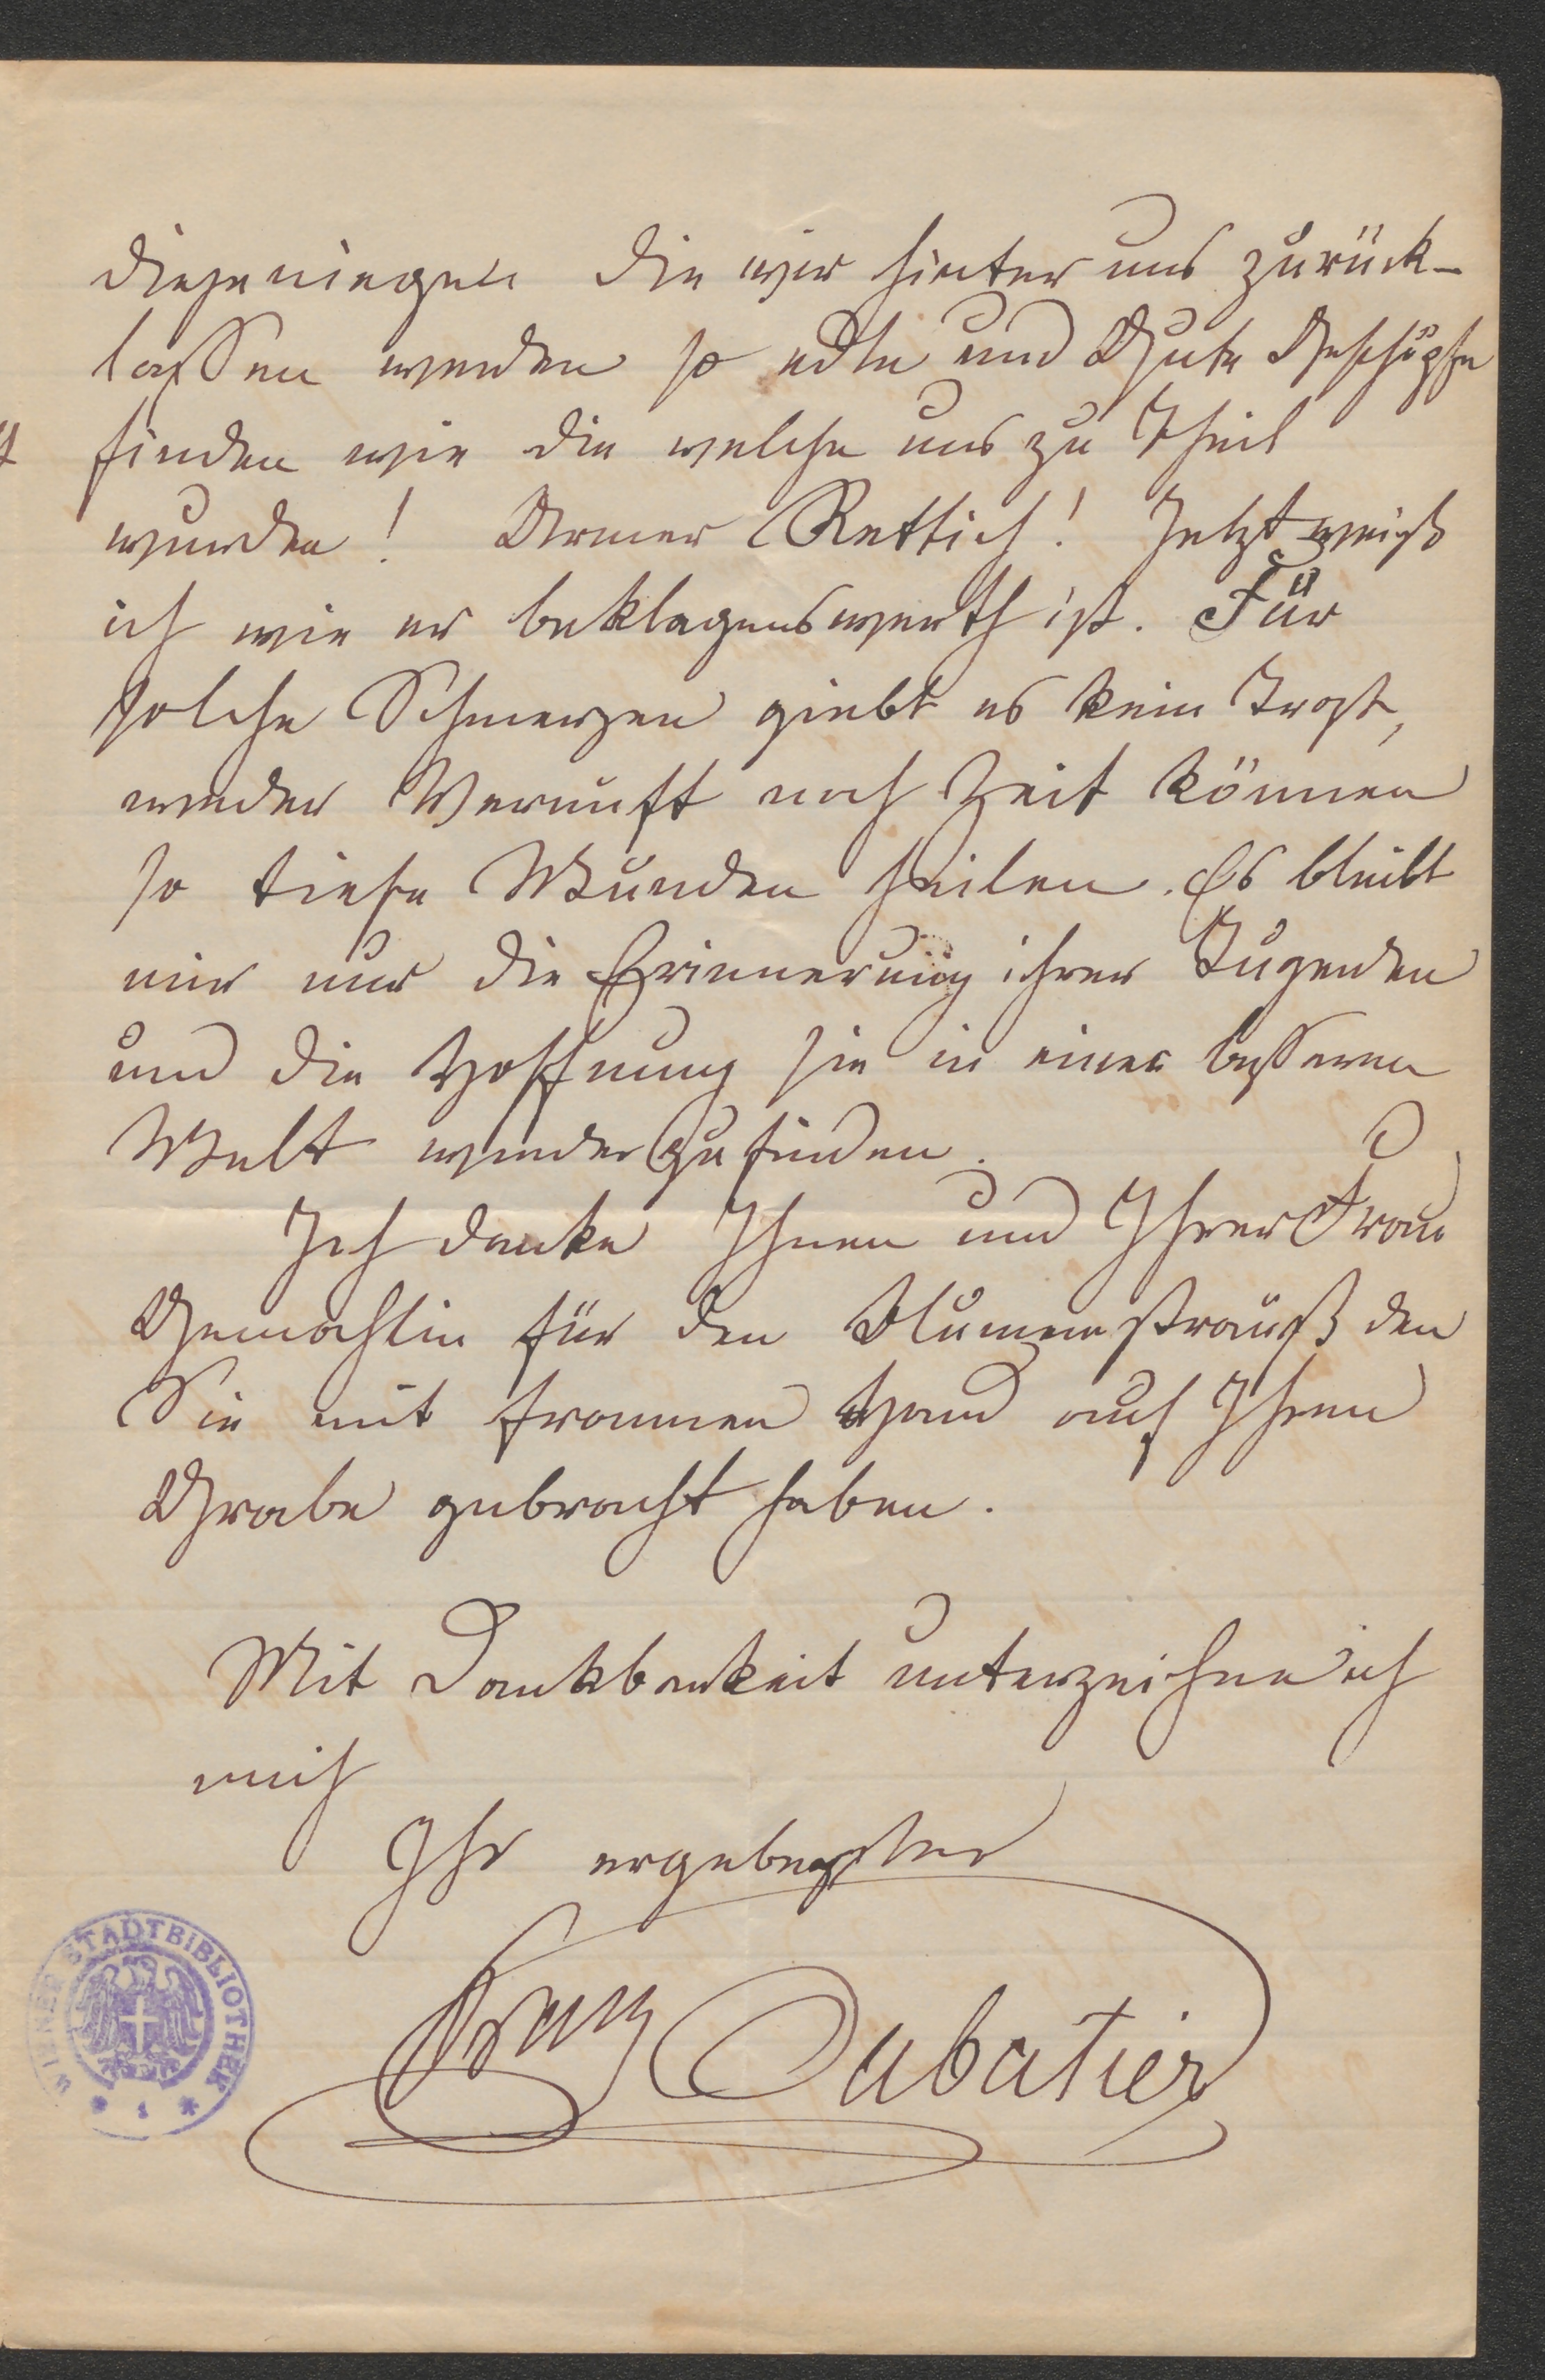 diejeniegen die wir hinter uns zurück-
lassen werden so edle und Gute Geschöpfe
finden wie die welche uns zu Theil
wurden! Armer Rettich! Jetzt weiß
ich wie er beklagenswerth ist. Für
solche Schmerzen giebt es kein Trost,
weder Vernunft noch Zeit können
so tiefe Wunden heilen. Es bleibt
mir nur die Erinnerung ihrer Tugenden
und die Hoffnung sie in einer besseren
Welt wieder zu finden.
Ich danke Ihnen und Ihrer Frau
Gemahlin für den Blumenstrauß den
Sie mit frommen Hand auf Ihrem
Grabe gebracht haben.
Mit Dankbarkeit unterzeichne ich
mich
Ihr ergebenster
Franz Sabatier
WIENER STADTBIBLIOTHEK